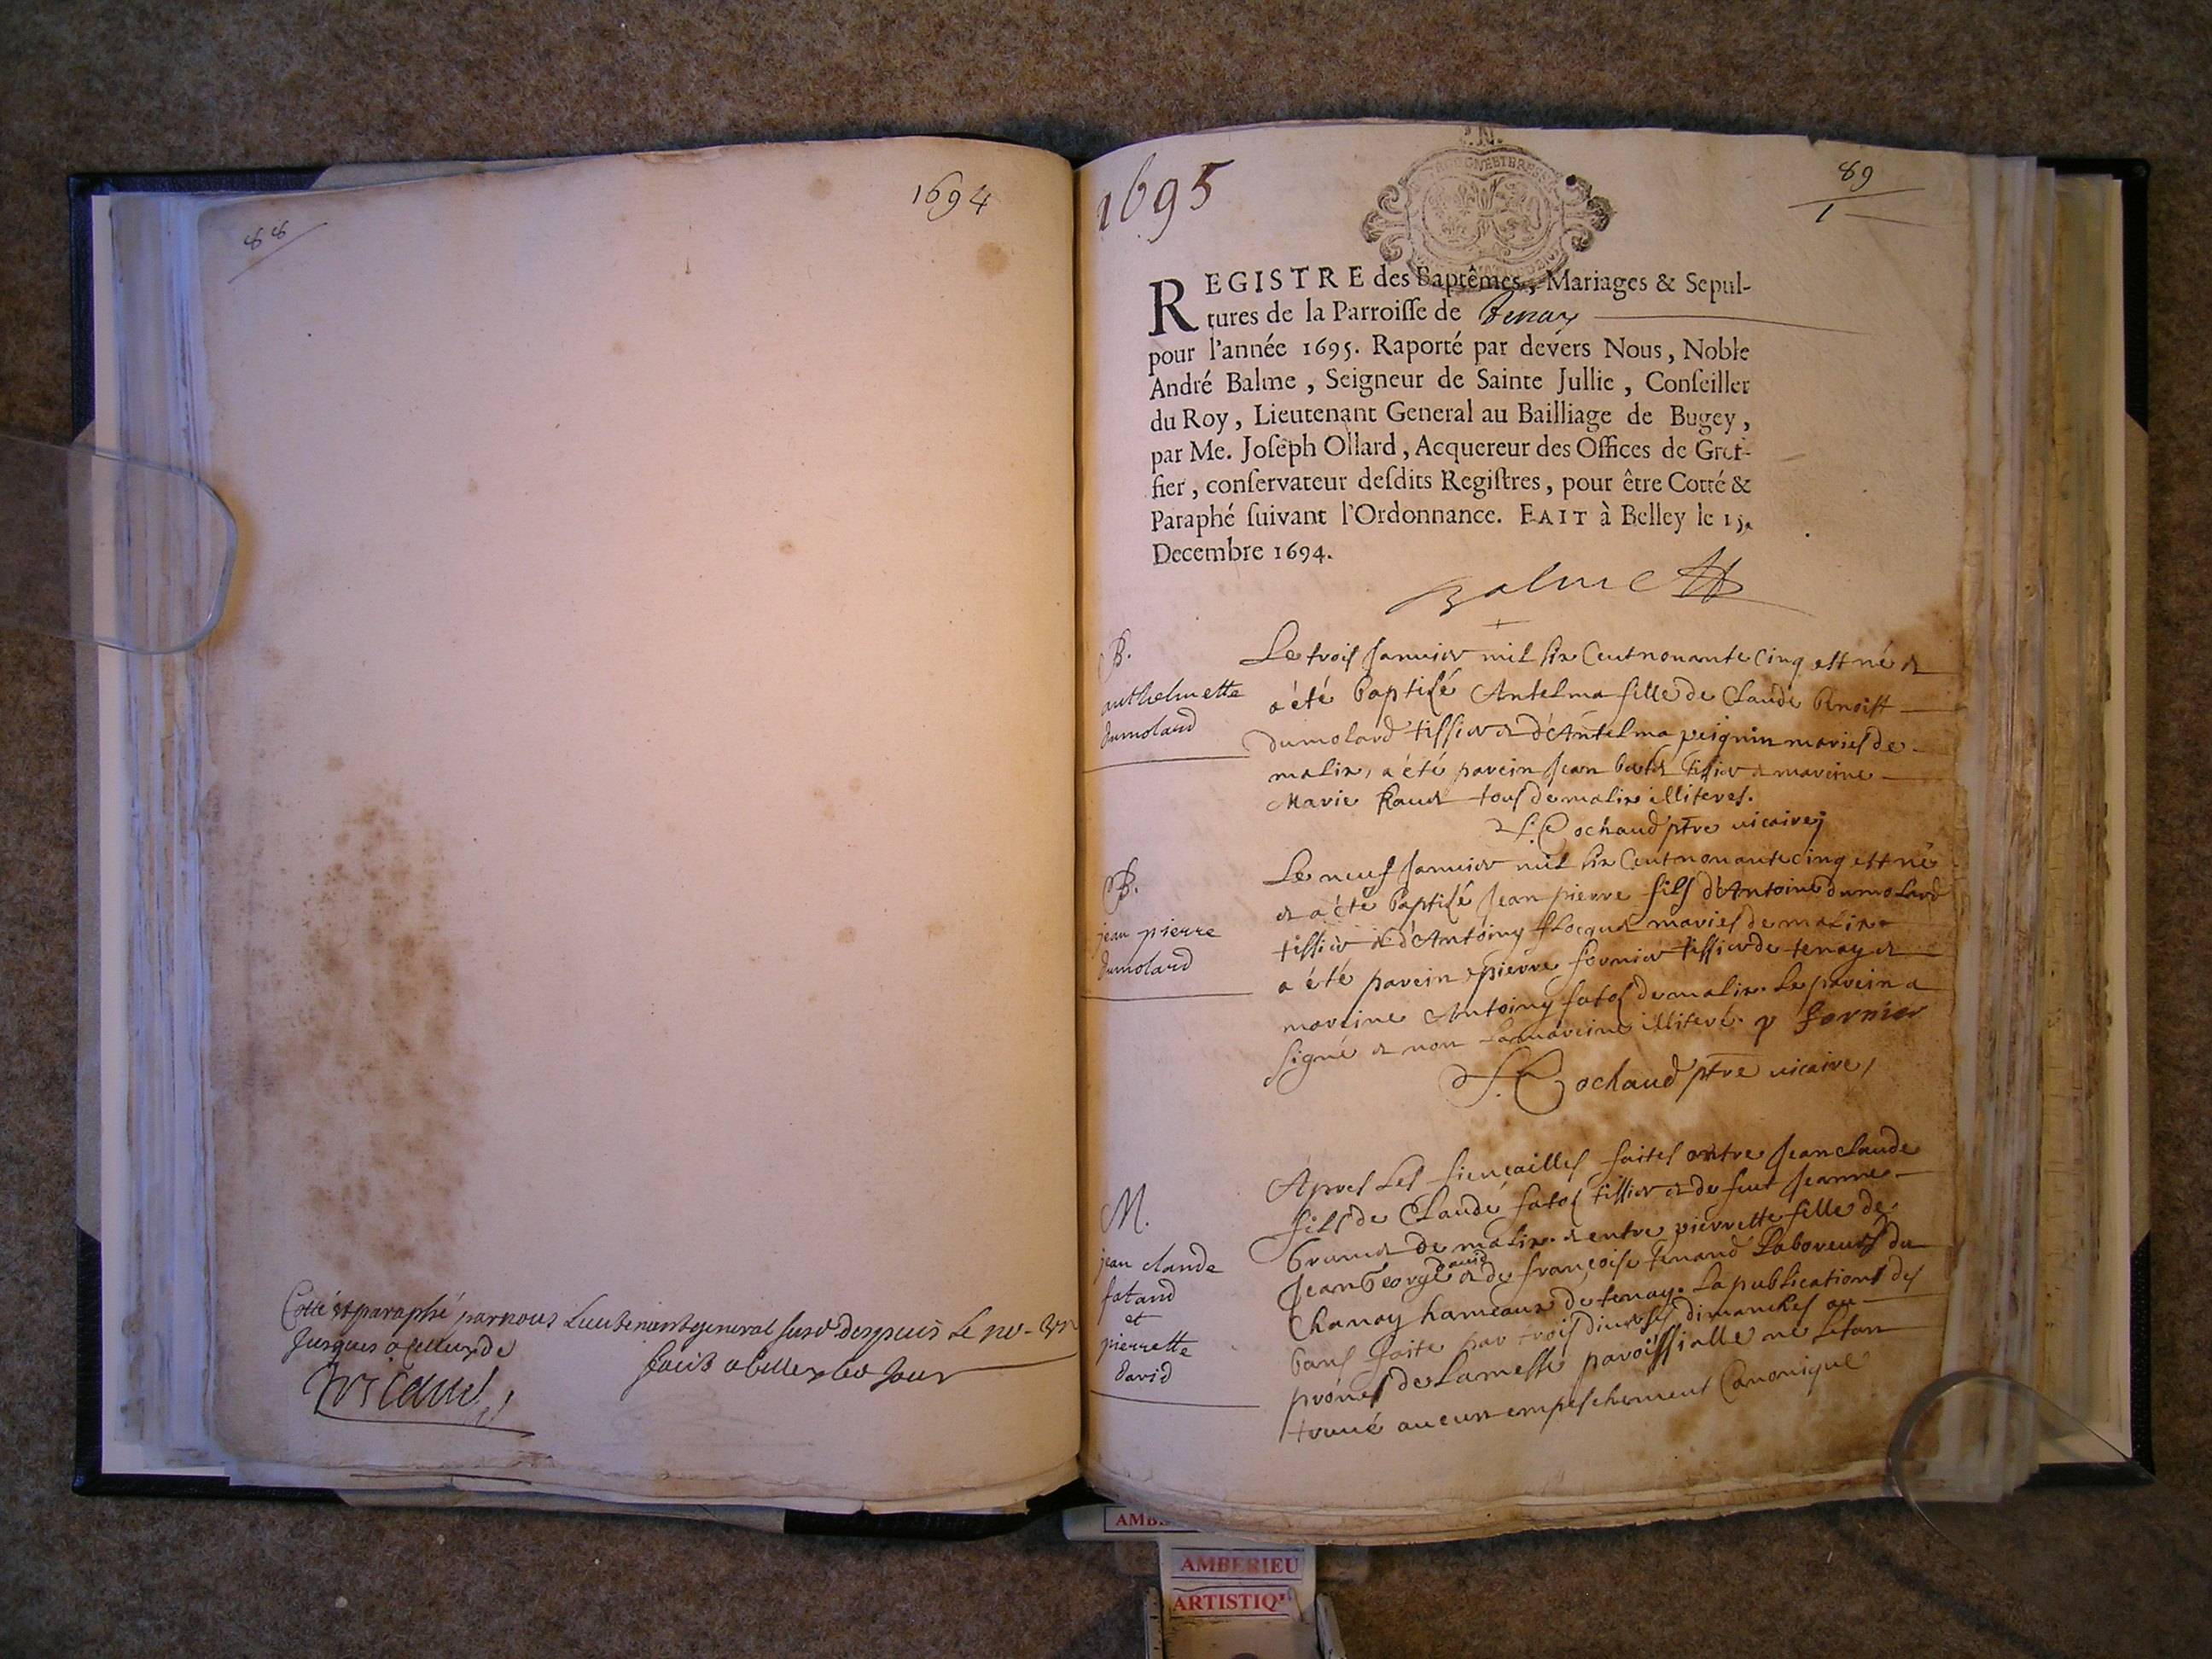 88
1694
Cotté et paraphé par nous Lieutenant general susd despuis le
Jusques a celluy de
faict a belley led Jour
1695
89
1
REGISTRE des Baptêmes, Mariages & Sepul-
tures de la Parroiſſe de Tenay
pour l'année 1695. Raporté par devers Nous, Noble
André Balme, Seigneur de Sainte Jullie, Conſeiller
du Roy, Lieutenant General au Bailliage de Bugey,
par Me. Joſeph Ollard, Acquereur des Offices de Gref-
fier, conſervateur deſdits Regiſtres, pour être Cotté &
Paraphé ſuivant l'Ordonnance. FAIT à Belley le 15.
Decembre 1694.
Balme
B.
anthelmette
dumolard
Le trois Janvier mil six Cent nonante Cinq est né et
a été baptisé Antelma fille de Claude benoist
dumolard tissier et d'Antelma peignin mariés de
malix, a été parein Jean tissier et mareine
Marie tous de malix illiterés.
Cochaud ptre vicaire
B.
jean pierre
dumolard
Le neuf Janvier mil six Cent nonante cinq est né
et a été baptisé Jean pierre fils d'Antoine dumolard
tissier et d'Antoiny mariés de malix
a été parein pierre fornier tissier de tenay et
mareine Antoiny fatod de malix. Le parein a
signé et non la mareine illiteré. p fornier
Cochaud ptre vicaire
M.
jean claude
fatand
et
pierrette
david
Apres les fiencailles faites entre Jean claude
fils de Claude fatod tissier et de feue Jeanne
brunet de malix. et entre pierrette fille de
Jean George david et de françoise tenand Laboreurs du
Chanay hameaux de tenay. La publications des
bans faite par trois diverses dimanches au
prônes de La messe paroissialle ne s'etan
trouvé aucun empeschement Canonique
AMBERIEU
ARTISTIQ